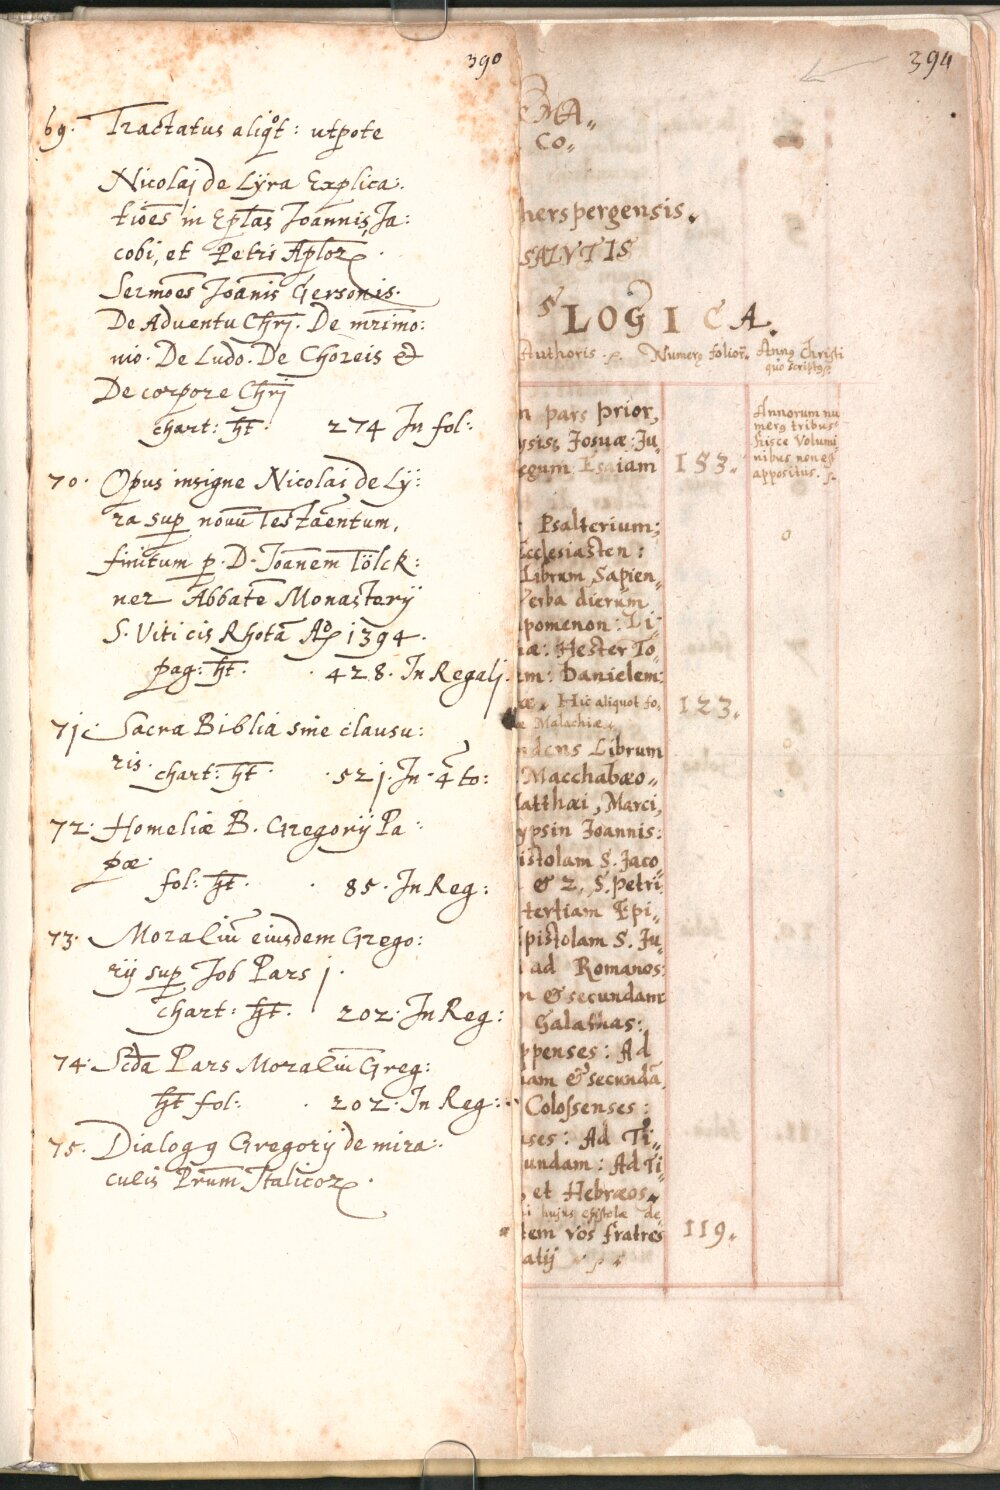 390
69. Tractatus aliqt: utpote
Nicolaj de Lÿra Explica:
tiões in Eplãs Joannis, Ja:
cobi, et Petri Aplor
Sermões Joãnis Gersonis.
De Adventu Chrj. De mrimo:
nio. De Ludo. De Choreis et
De corpore Chrj
chart: ht. 274 In fol:
70. Opus insigne Nicolai de Lÿ:
ra sup novũ Testãentum,
finitum p. D. Joãnem Tölck:
ner Abbatẽ Monasterÿ
S. Viti cis Rhotã Aõ 1394.
pag: ht. 428. In Regalj.
71. Sacra Biblia sine clausu:
ris. chart: ht. 521. In 4to:
72. Homeliæ B. Gregorÿ Pa:
pæ.
fol: ht. 85. In Reg:
73. Moraliũ eiusdem Grego:
rÿ sup Job Pars j.
chart: ht. 202. In Reg:
74. Scda Pars Moraliũ Greg:
ht fol: 202. In Reg:
75. Dialogg Gregorÿ de mira:
culis Prum Italicor.
394
EMA„
CO„
herspergensis.
SALVTIS
LOGICA.
Authoris. Numerg folior. Anng Christi
quo scriptg
n pars prior,
ysis, Josuæ: Ju„
egum: Esaiam 153.
Annorum nu
merg tribus
hisce Volumi
nibus non est
appositus.
Psalterium;
Ecclesiasten:
Librum Sapien„
Verba dierum
pomenon: Li:
iæ: Hester To„
em: Danielem:
æ. Hic aliquot fo„ 123.
æ Malachiæ.
ndens Librum
Macchabæo„
Matthæi, Marci,
ypsin Joannis:
istolam S. Jaco
& 2. S. Petri;
tertiam Epi„
pistolam S. Ju„
ad Romanos:
n & secundam
Galathas:
ppenses: Ad
iam & secundã
Colossenses:
ses: Ad Ti„
undam: Ad Ti„
, et Hebræos„
i hujus epistolæ de
tem vos fratres 119.
atij